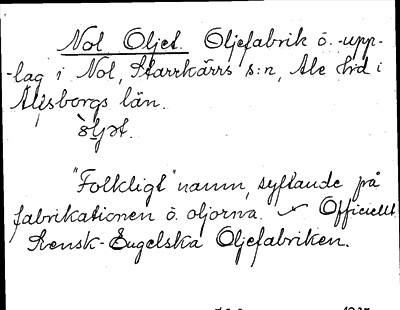 Nol Oljet. Oljefabrik o. -upp-
-lag i Nol, Starrkärrs s:n, Ale hd i
Älfsborgs län.
"Folkligt" namn, syftande på
fabrikationen o. oljorna. Officiellt
Svensk-Engelska Oljefabriken.